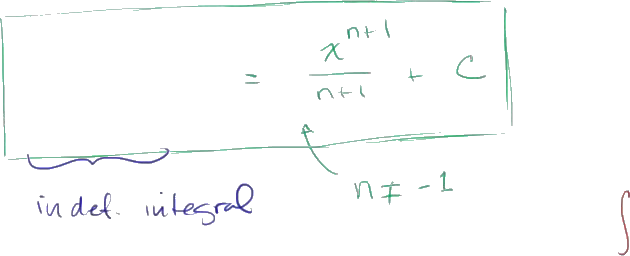 = x^{n+1}/n+1 + C
n ≠ -1
indef. integral
∫